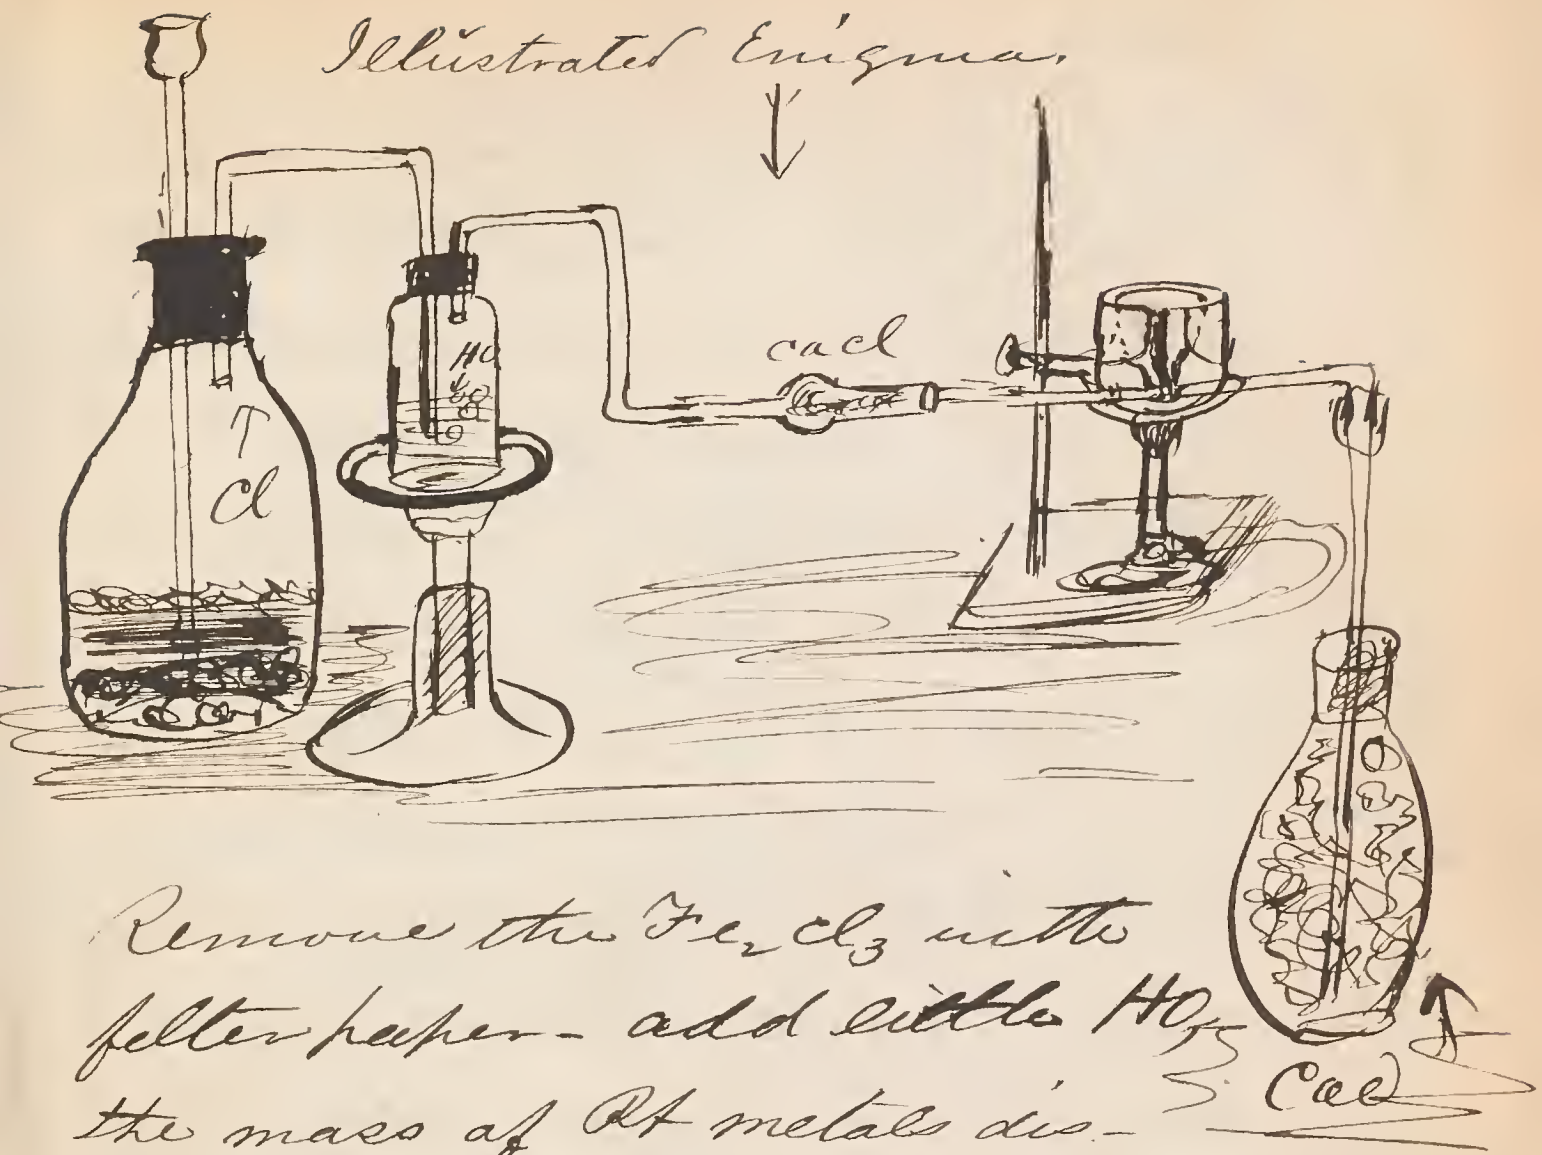 Illustrated Enigma.
cacl
HO
T
Cl
Remove the Fe₂Cl₃ with
filter paper - add little HO
the mass of Pt metals dis-